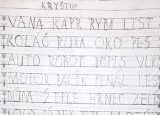 KRYŠTOF
VÁNA KAPR RYBA LIST
KOLÁČ RUKA OKO PES
AUTO ROBOT DOPIS VLK
MOTOR BALÍK PENÁL LES
STÁLE HRNEC